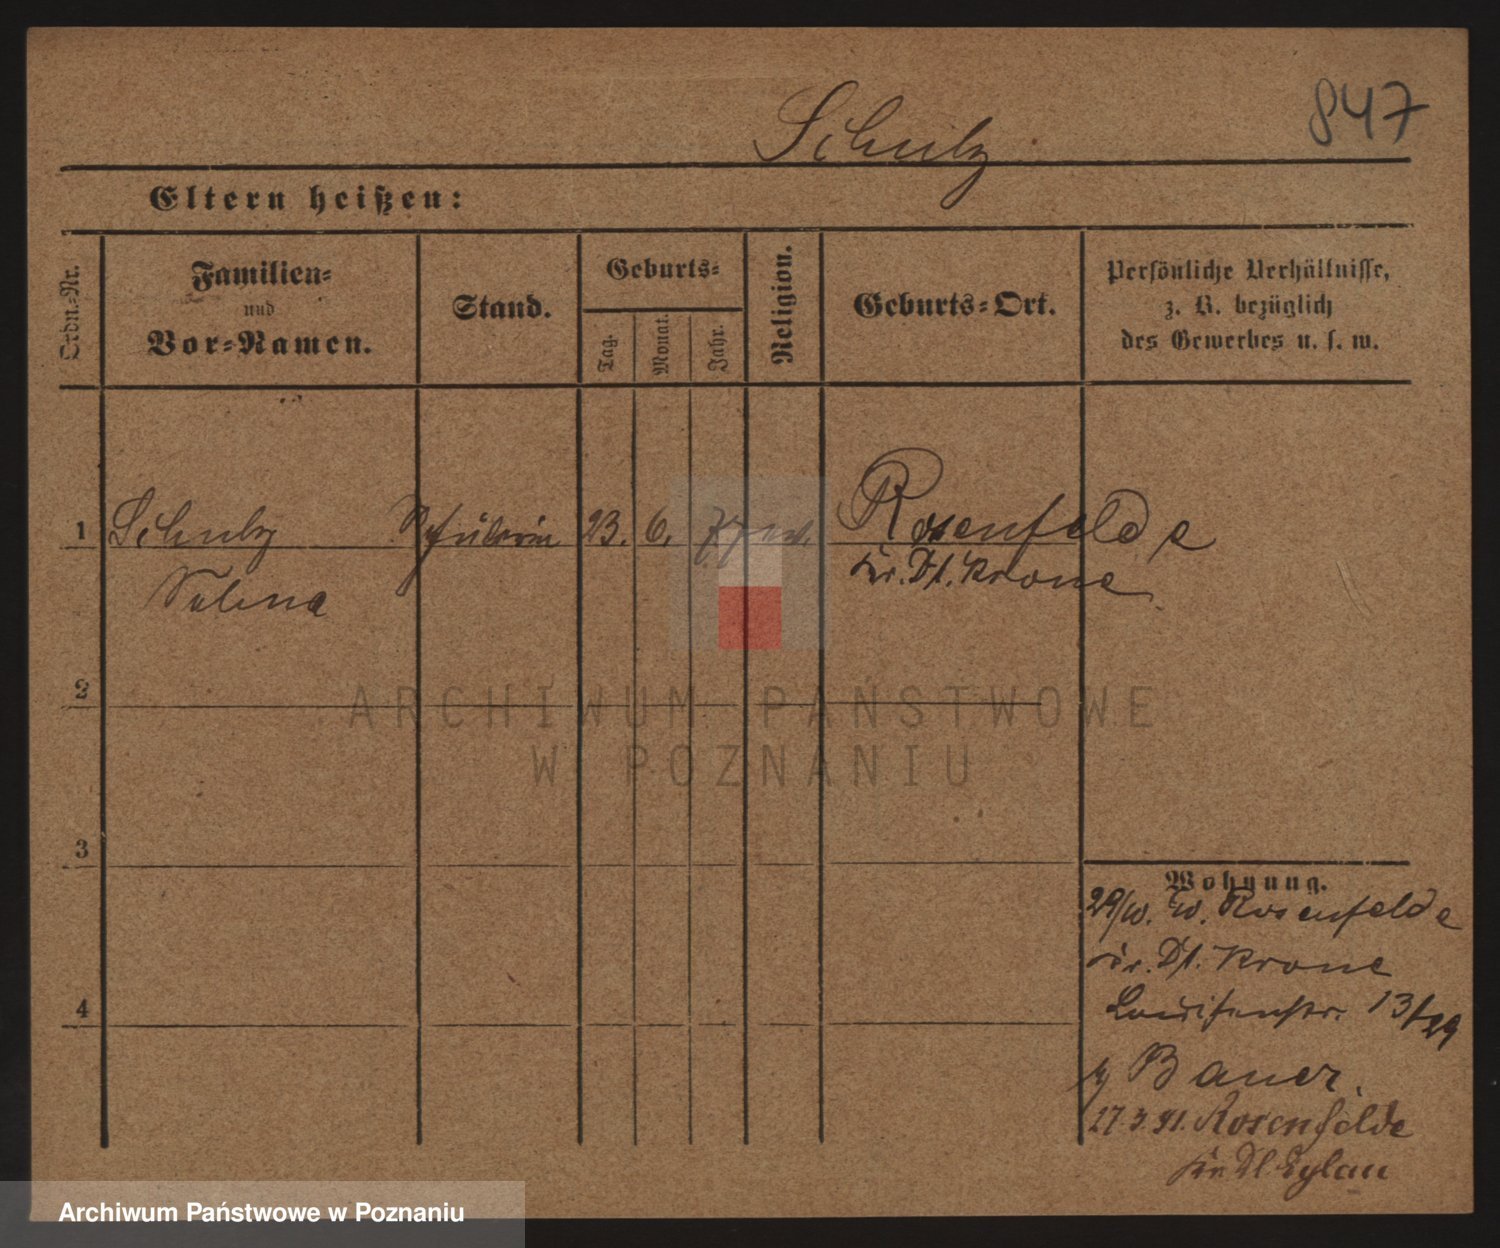 847
Schulz
Eltern heißen:
Ordn.-Nr.
Familien-
und
Vor-Namen.
Stand.
Geburts-
Tag.
Monat.
Jahr.
Religion.
Geburts-Ort.
Persönliche Verhältnisse,
z. B. bezüglich
des Gewerbes u. s. w.
1 Schulz Schülerin 23. 6. 77 ev. Rosenfelde
Kr. Dt. Krone
Selma
2
3
4
Wohnung.
29/10. Rosenfelde
Kr. Dt. Krone
Louisenstr. 13/29
b/ Bauer.
27.3.91. Rosenfelde
Kr. Dt. Eylau
ARCHIWUM PAŃSTWOWE
W POZNANIU
Archiwum Państwowe w Poznaniu